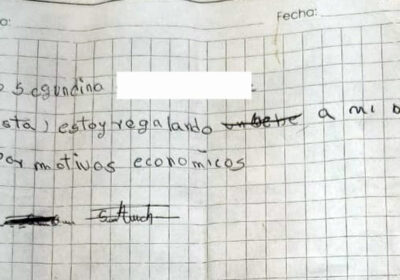 o: Fecha:
o segundina
sta) estoy regalando un bebe a mi b
Por motivos economicos